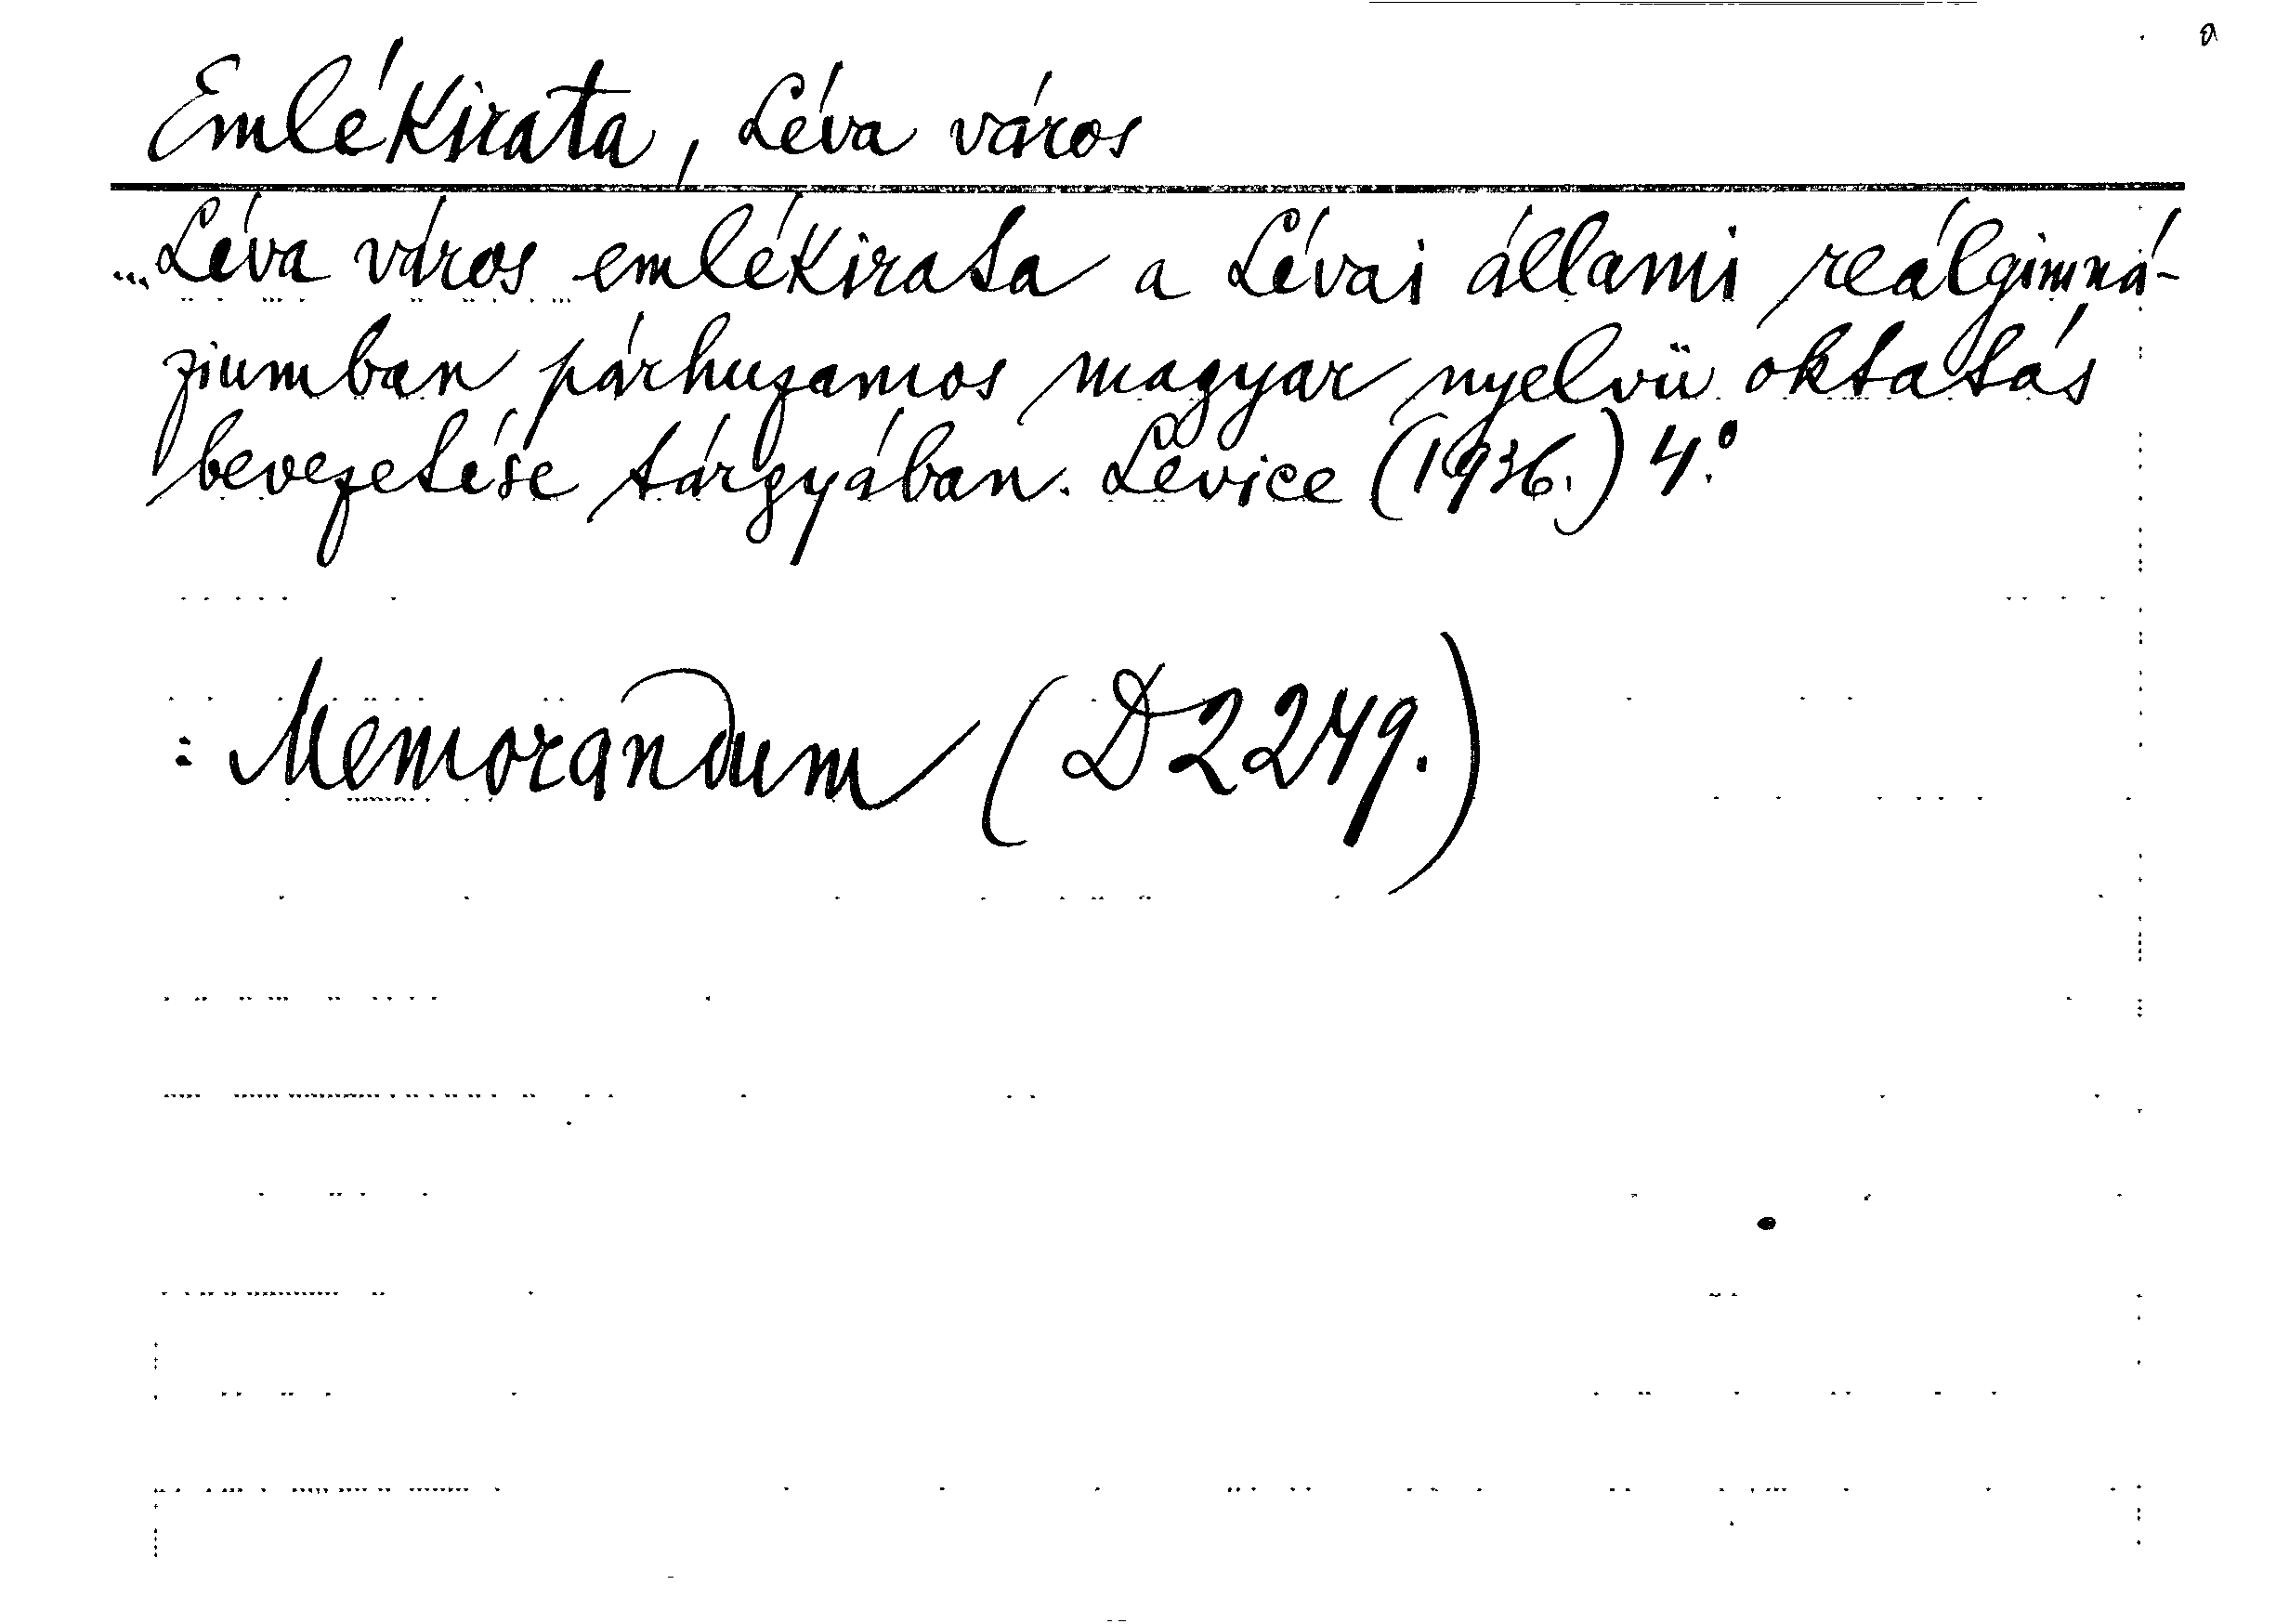 Emlékirata, Léva város
„Léva város emlékirata a Lévai állami reálgimná-
ziumban párhuzamos magyar nyelvü oktatás
bevezetése tárgyában. Levice (1936.) 4.°
: Memorandum (D2249.)